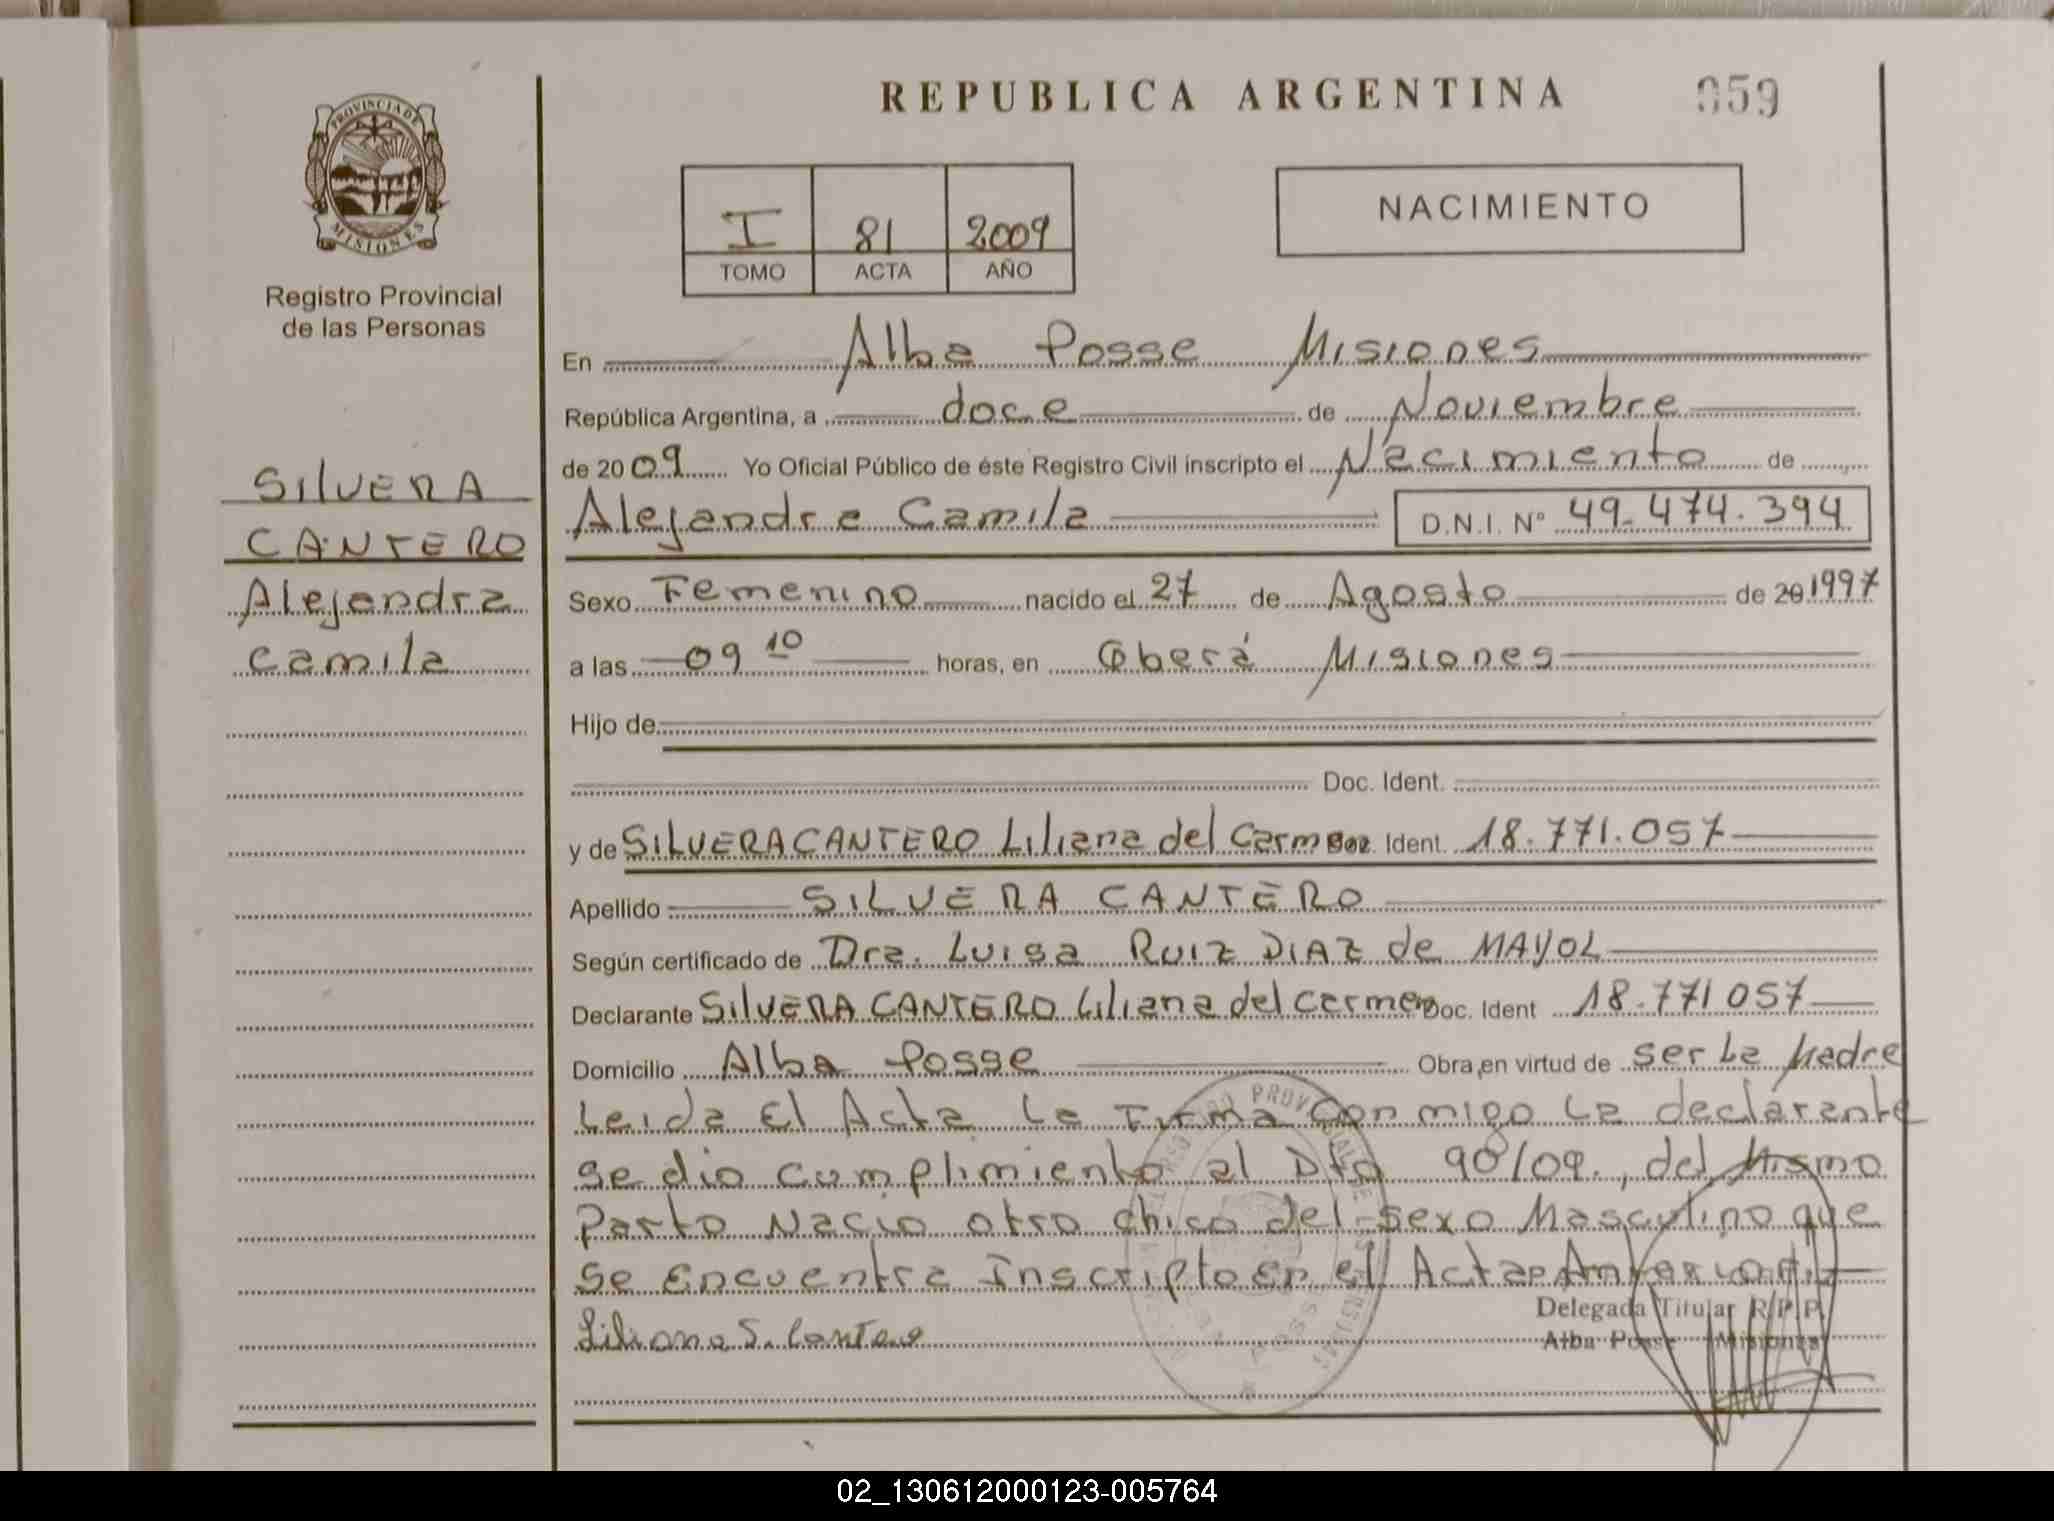 REPUBLICA ARGENTINA
059
PROVINCIA DE
MISIONES
Registro Provincial
de las Personas
I 81 2009
TOMO ACTA AÑO
NACIMIENTO
SILVERA
CANTERO
Alejandra
Camila
En Alba Posse Misiones
República Argentina, a doce de Noviembre
de 2009 Yo Oficial Público de éste Registro Civil inscripto el Nacimiento de
Alejandra Camila D.N.I. Nº 49.474.394
Sexo Femenino nacido el 27 de Agosto de 20 1997
a las 09 10 horas, en Oberá Misiones
Hijo de
Doc. Ident.
y de SILVERA CANTERO Liliana del Carmen Doc. Ident. 18.771.057
Apellido SILVERA CANTERO
Según certificado de Dra. Luisa RUIZ DIAZ de MAYOL
Declarante SILVERA CANTERO Liliana del Carmen Doc. Ident 18.771057
Domicilio Alba Posse Obra,en virtud de ser La Madre
Leida El Acta La Firma Conmigo La declarante
se dio cumplimiento al Dto 90/09., del Mismo
Parto Nacio otro chico del Sexo Masculino que
se Encuentra Inscripto En el Acta Anterior.-
Liliana S. Cantero
Delegada Titular R.P.P.
Alba Posse Misiones
02_130612000123-005764